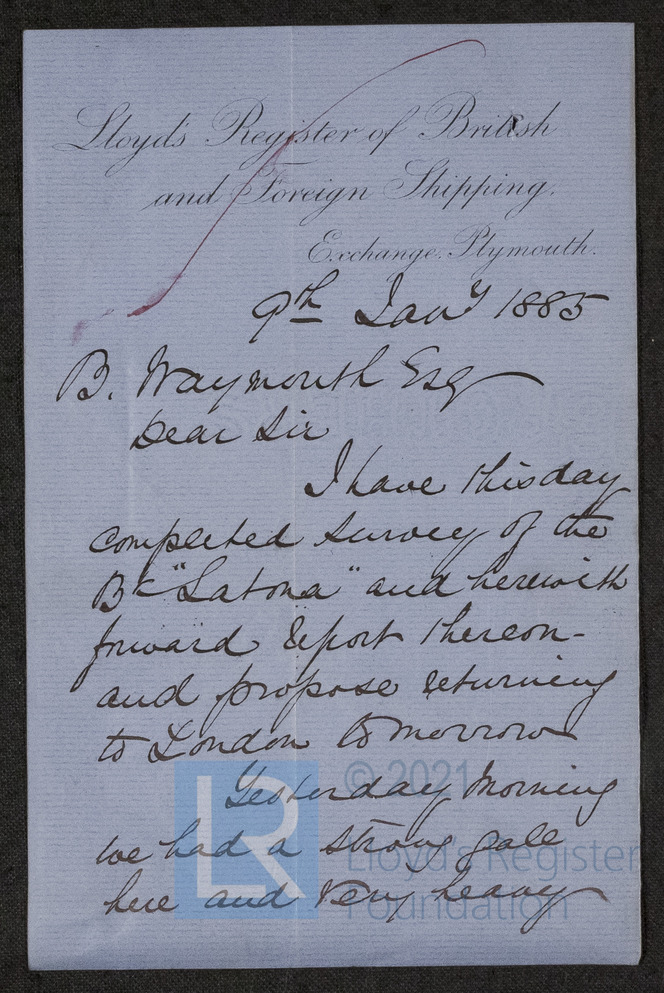 Lloyd's Register of British
and Foreign Shipping.
Exchange. Plymouth.
9th Jany 1885
B. Waymouth Esq
Dear Sir
I have this day
completed survey of the
Bk "Latona" and herewith
forward report thereon-
and propose returning
to London tomorrow
Yesterday morning
we had a strong gale
here and very heavy
LR
© 2021
Lloyd's Register
Foundation